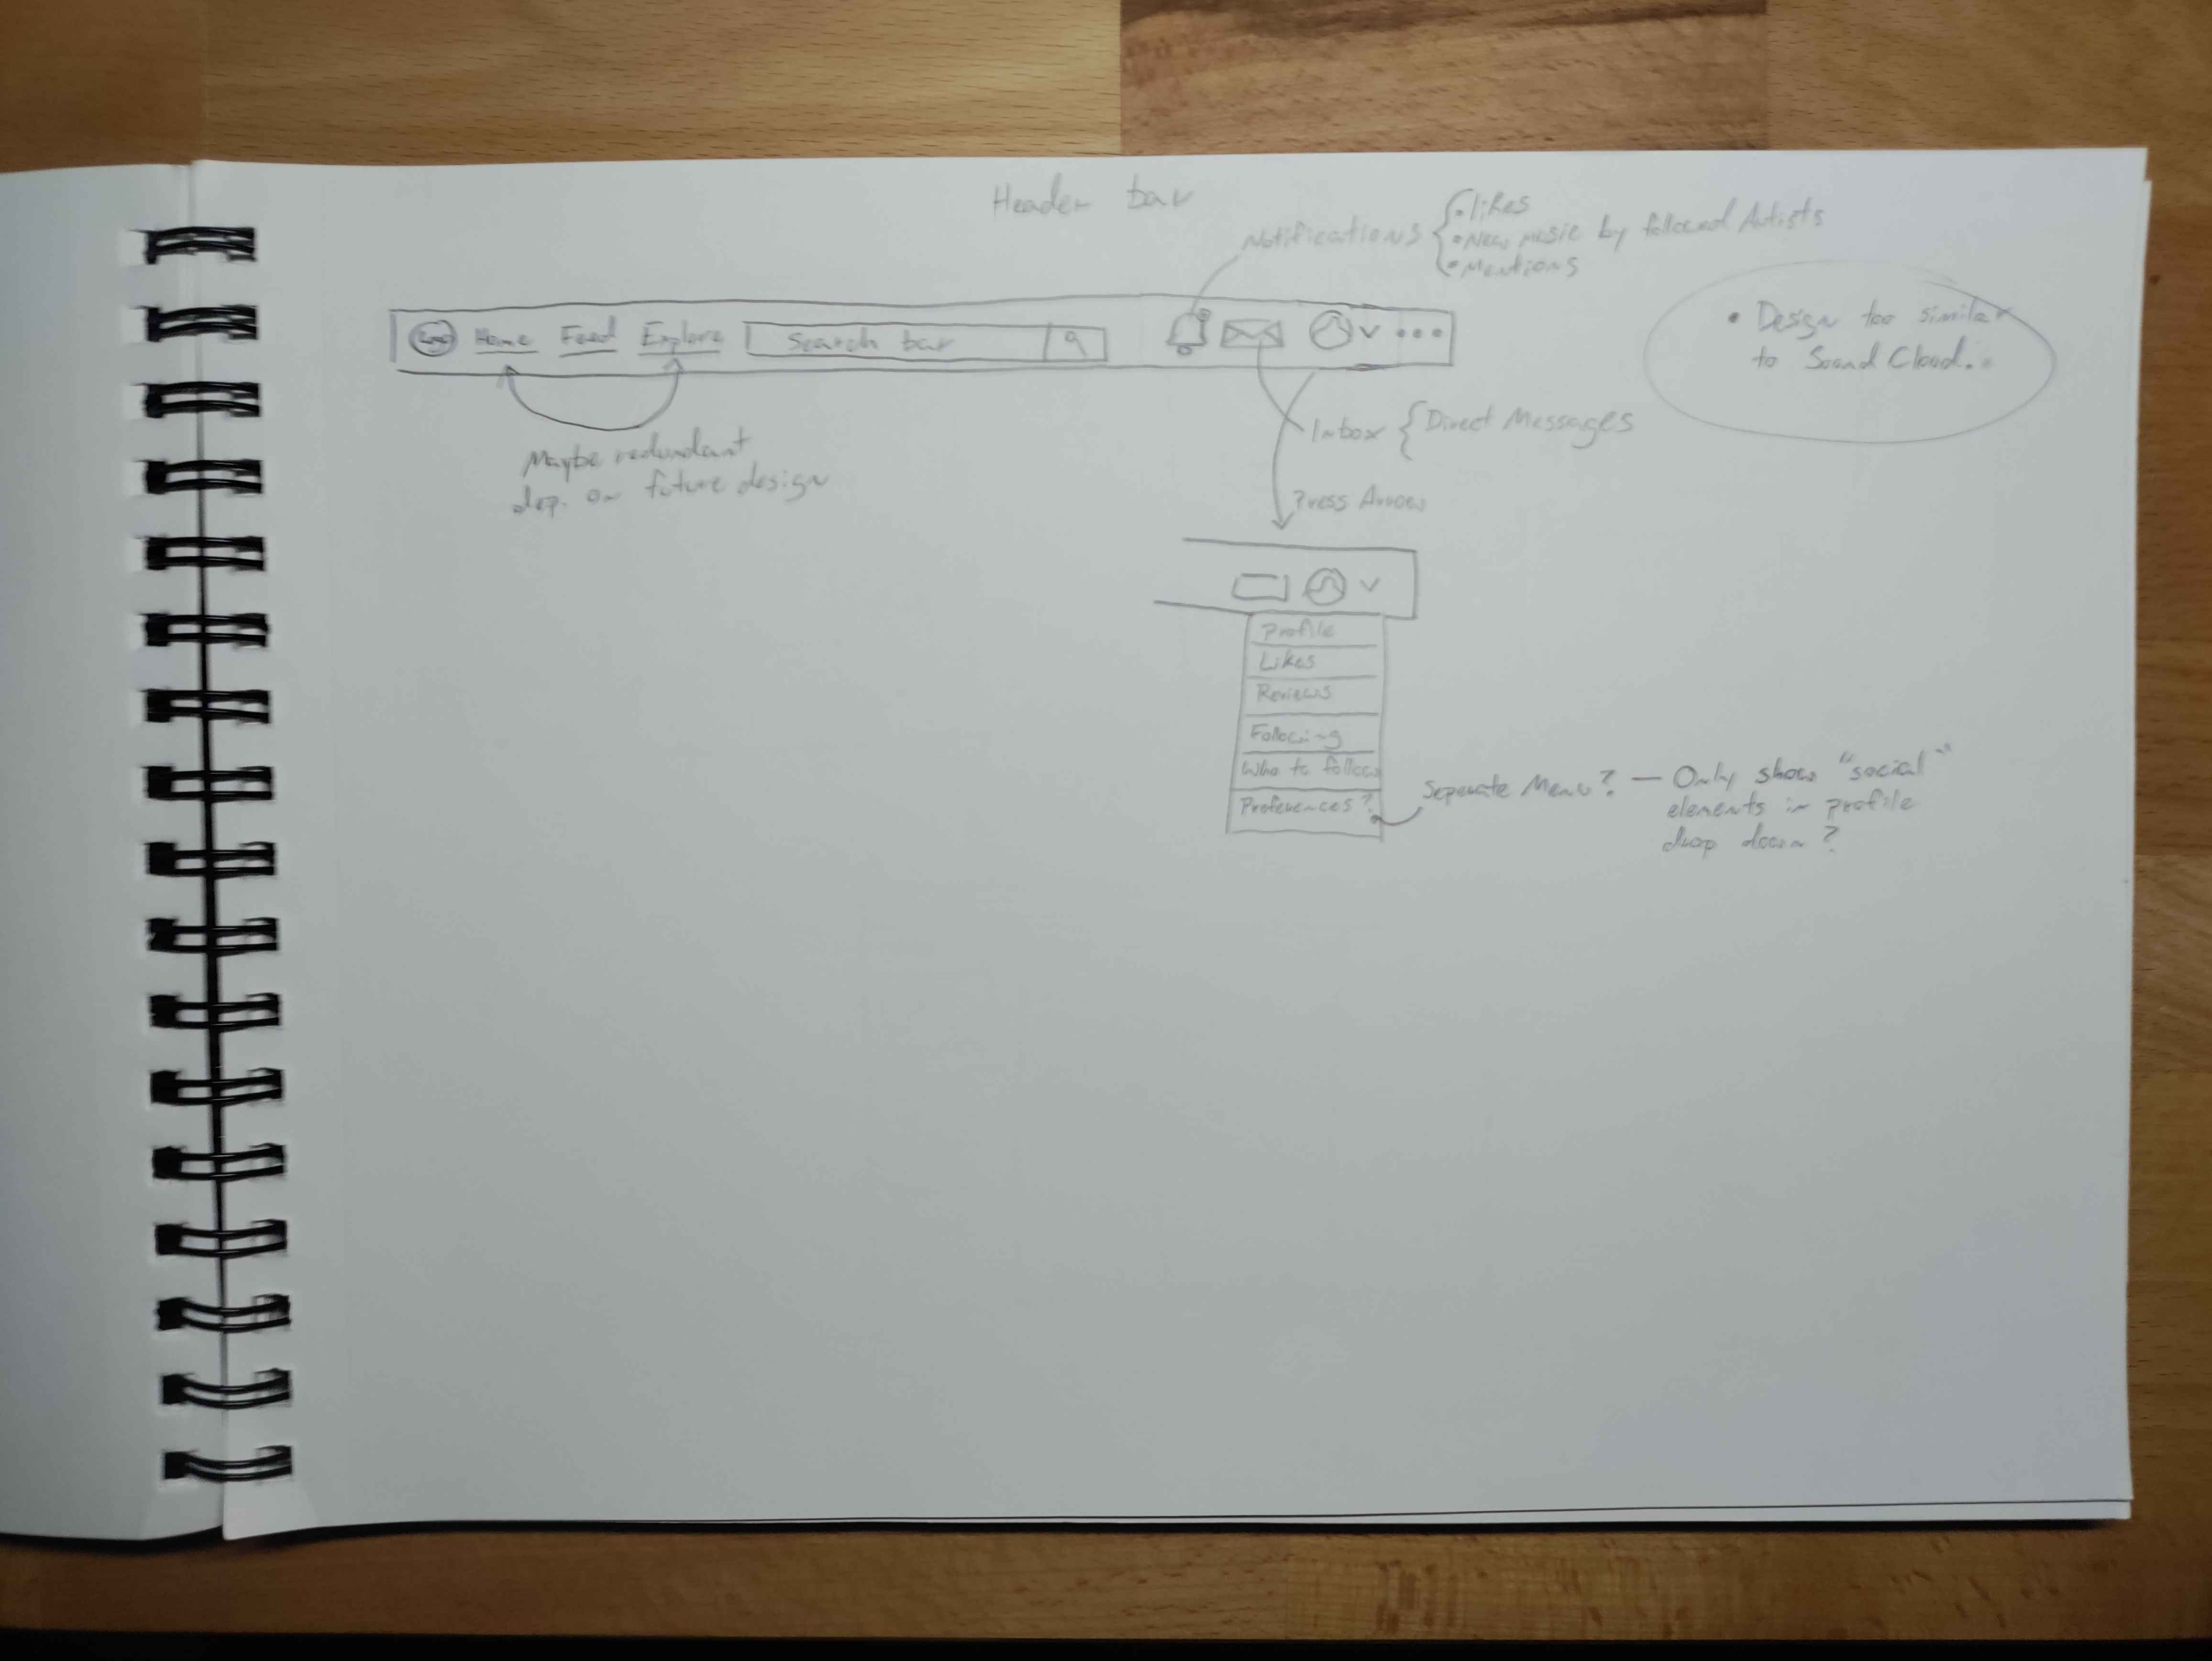 Header bar
Notifications
• likes
• New music by followed Artists
• Mentions
Home Feed Explore Search bar
• Design too similar
to Sound Cloud..
Maybe redundant
dep. on future design
Inbox { Direct Messages
Press Arrow
Profile
Likes
Reviews
Following
Who to follow
Preferences?
Seperate Menu? — Only show "social"
elements in profile
drop down?